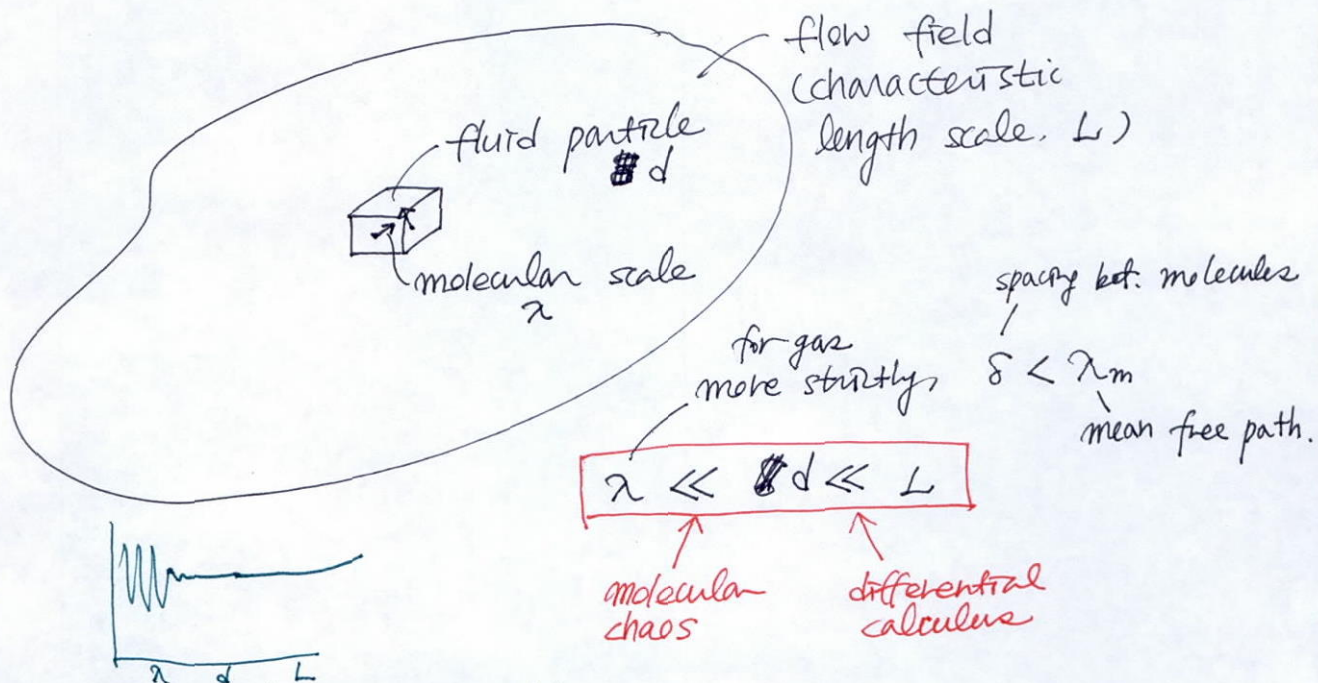 flow field
(characteristic
length scale. L)
fluid particle
d
molecular scale
λ
spacing bet. molecules
for gas
more strictly,
δ < λm
mean free path.
λ ≪ d ≪ L
molecular
chaos
differential
calculus
λ d L